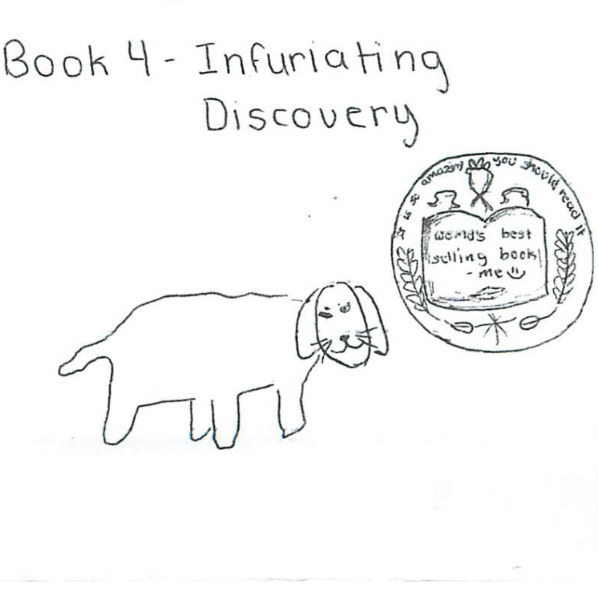 Book 4 - Infuriating
Discovery
it is so amazing you should read it
world's best
selling book
- me